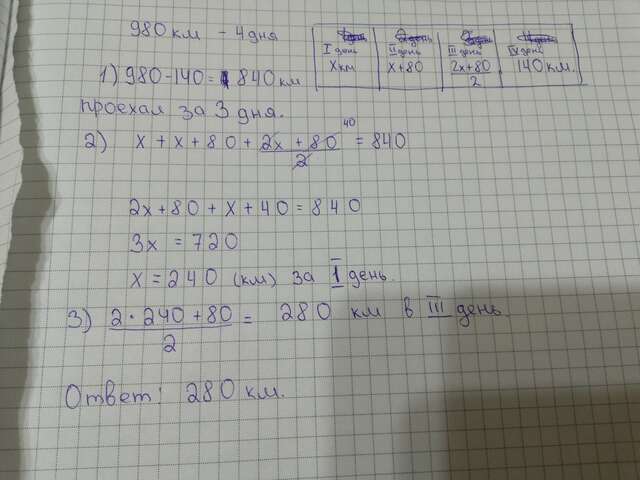 980 км - 4 дня
I день II день III день IV день
x км x+80 2x+80/2 140 км.
1) 980-140= 840 км
проехал за 3 дня.
2) x + x + 80 + 2x + 80/2 40 = 840
2x+80 + x + 40 = 840
3x = 720
x = 240 (км) за I день.
3) 2·240+80/2 = 280 км в III день.
Ответ: 280 км.